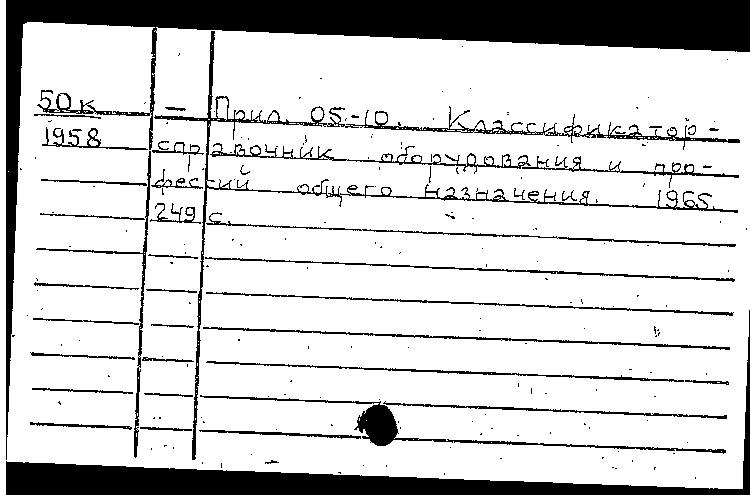 50к — Прил. 05-10. Классификатор-
1958 справочник оборудования и про-
фессий общего назначения. 1965.
249 с.